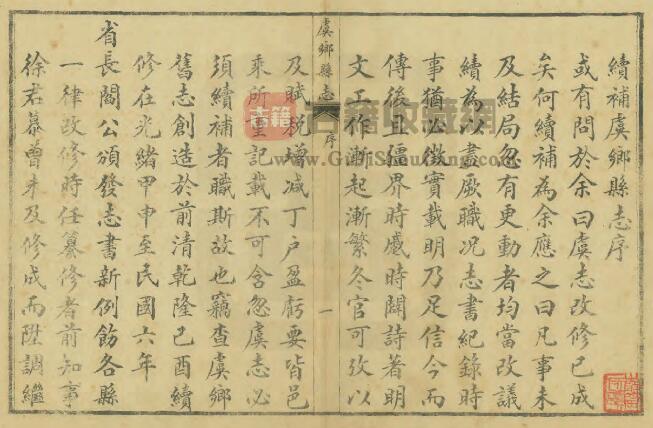 續補虞鄉縣志序
或有問於余曰虞志改修已成
矣何續補為余應之曰凡事未
及結局忽有更動者均當改議
續為以盡厥職况志書紀錄時
事猶必徵實載明乃足信今而
傳後且疆界時蹙時闢詩著明
文工作漸起漸繁冬官可攷以
虞鄉縣志
序
一
及賦稅增減丁戶盈虧要皆邑
乘所重記載不可含忽虞志必
須續補者職斯故也竊查虞鄉
舊志創造於前清乾隆己酉續
修在光緒甲申至民國六年
省長閻公頒發志書新例飭各縣
一律改修時任纂修者前知事
徐君慕曾未及修成而陞調繼
古籍
古籍收藏網
www.GuJiShouCang.com